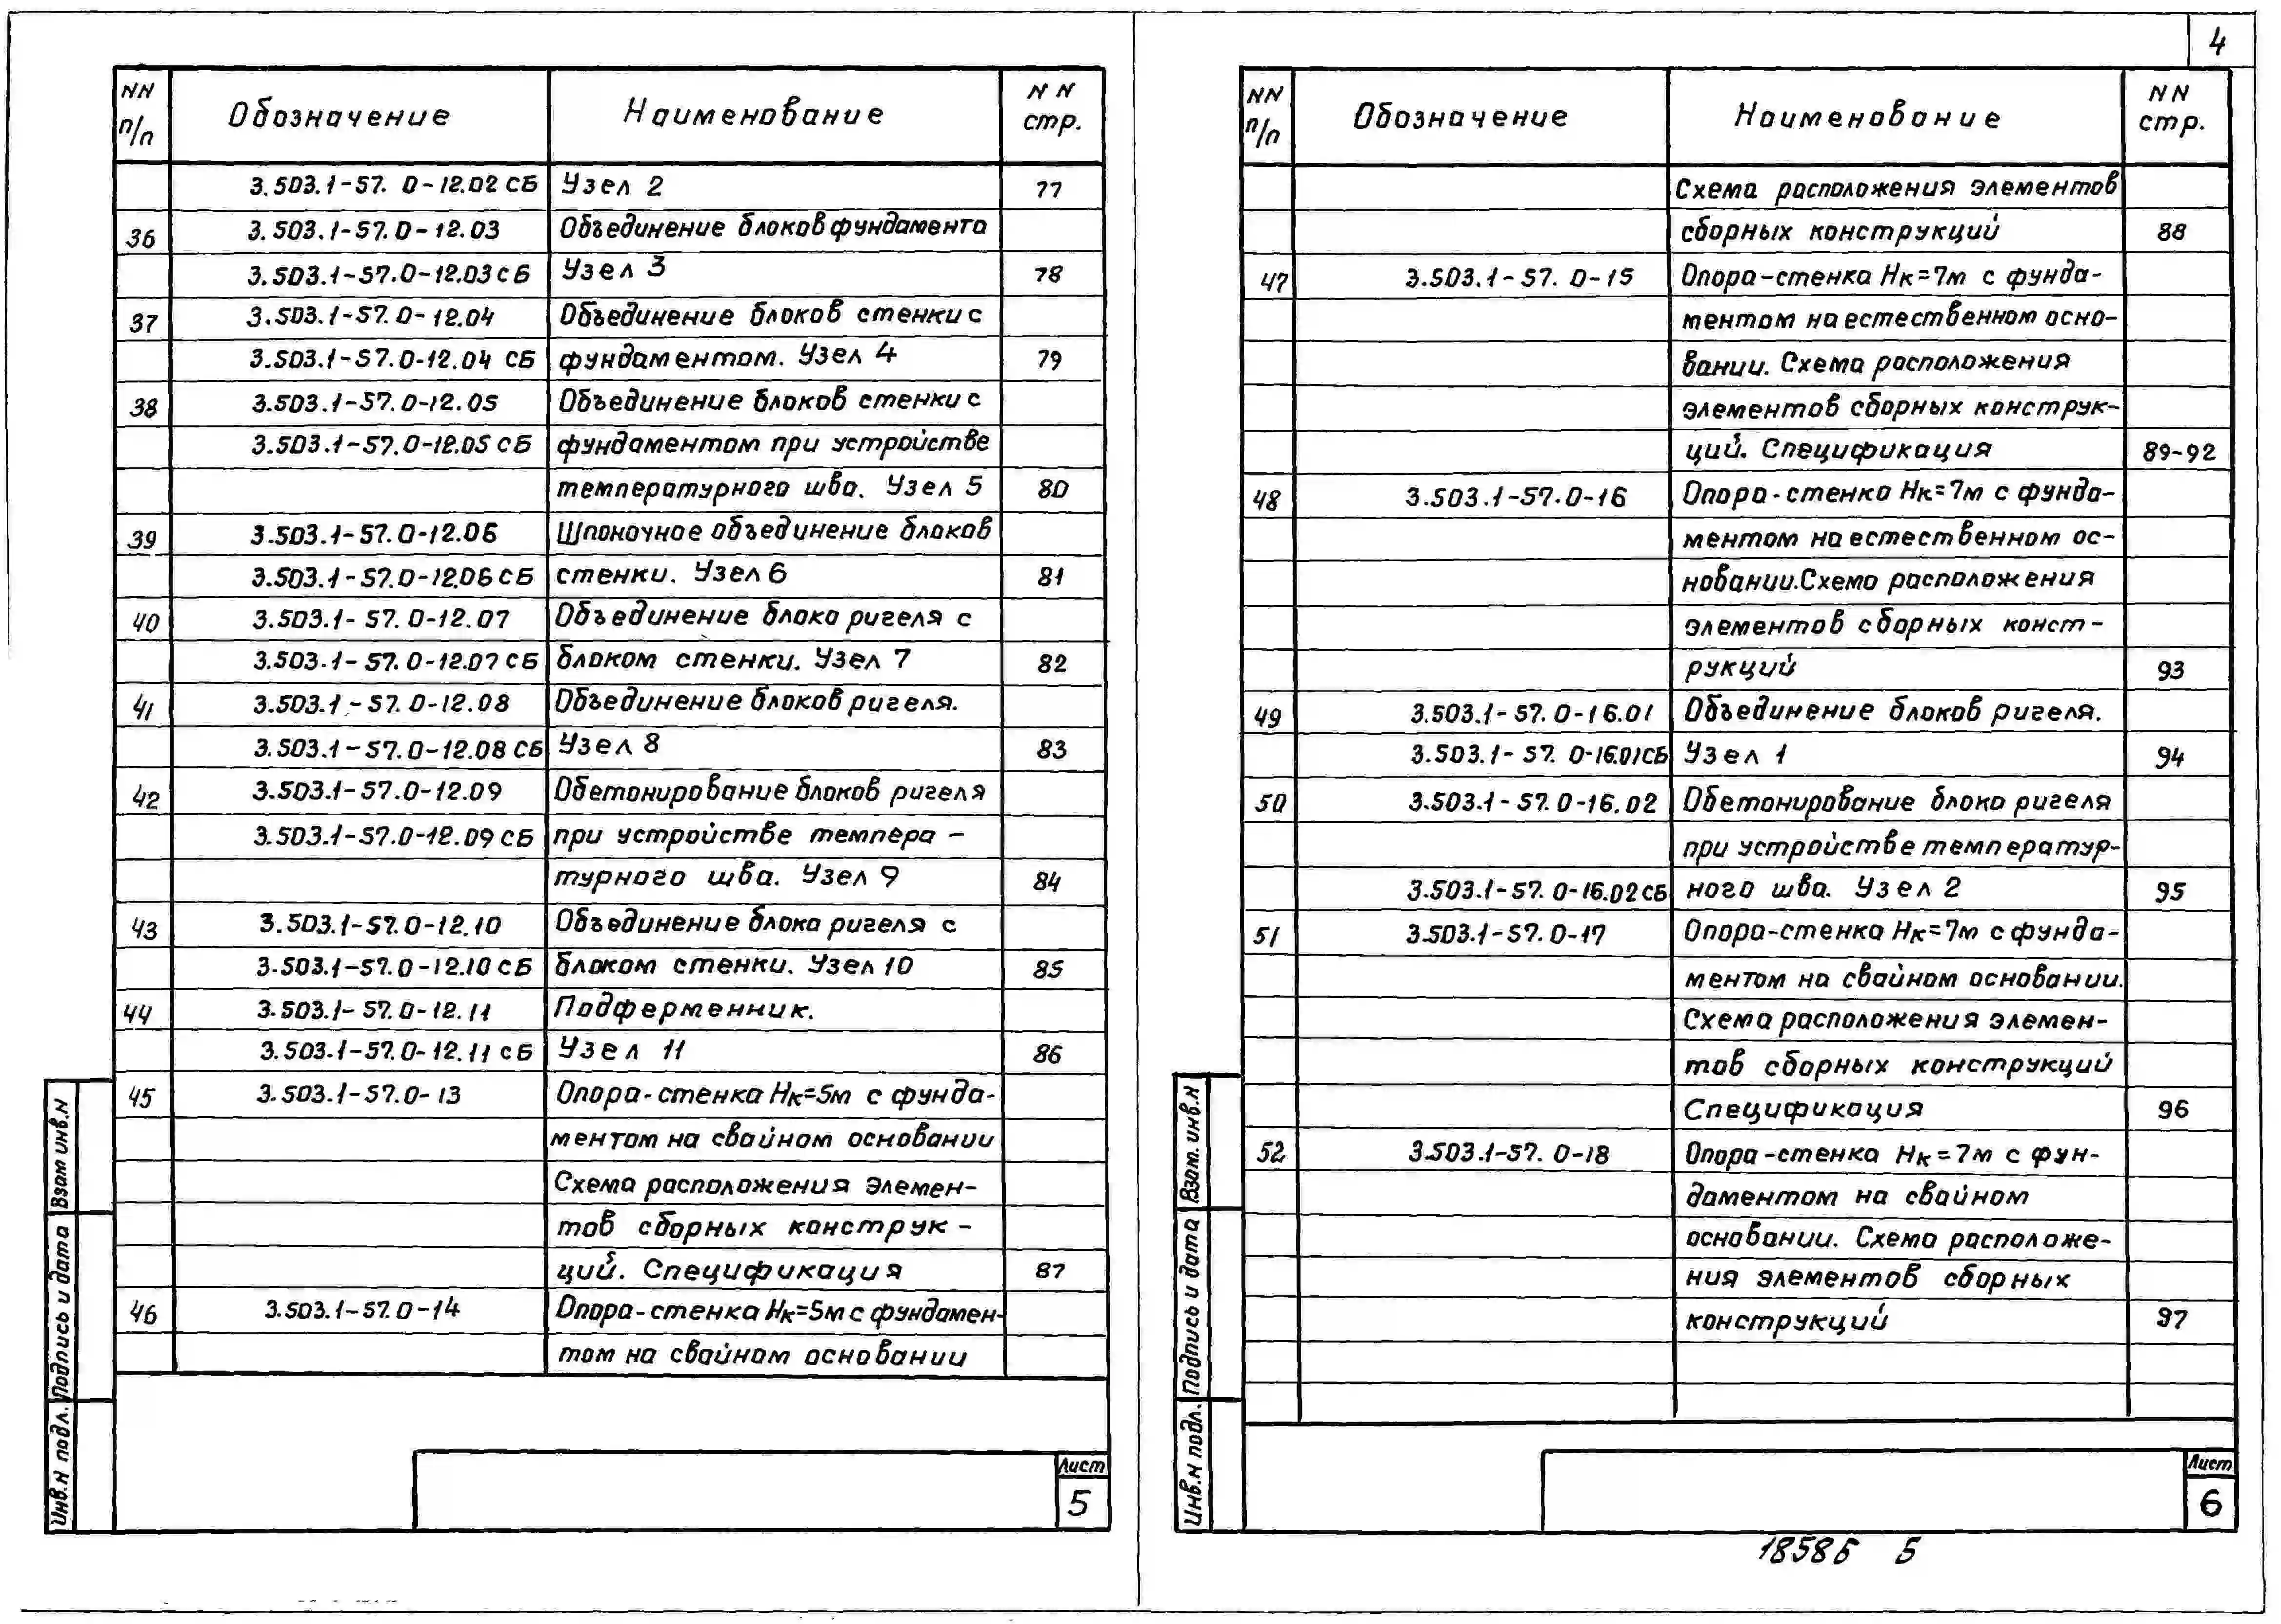 4
NN п/п Обозначение Наименование NN стр.
3.503.1-57. 0-12.02 СБ Узел 2 77
36 3.503.1-57.0-12.03 Объединение блоков фундамента
3.503.1-57.0-12.03 СБ Узел 3 78
37 3.503.1-57.0-12.04 Объединение блоков стенки с
3.503.1-57.0-12.04 СБ фундаментом. Узел 4 79
38 3.503.1-57.0-12.05 Объединение блоков стенки с
3.503.1-57.0-12.05 СБ фундаментом при устройстве
температурного шва. Узел 5 80
39 3.503.1-57.0-12.06 Шпоночное объединение блоков
3.503.1-57.0-12.06 СБ стенки. Узел 6 81
40 3.503.1-57.0-12.07 Объединение блока ригеля с
3.503.1-57.0-12.07 СБ блоком стенки. Узел 7 82
41 3.503.1-57.0-12.08 Объединение блоков ригеля.
3.503.1-57.0-12.08 СБ Узел 8 83
42 3.503.1-57.0-12.09 Обетонирование блоков ригеля
3.503.1-57.0-12.09 СБ при устройстве темпера-
турного шва. Узел 9 84
43 3.503.1-57.0-12.10 Объединение блока ригеля с
3.503.1-57.0-12.10 СБ блоком стенки. Узел 10 85
44 3.503.1-57.0-12.11 Подферменник.
3.503.1-57.0-12.11 СБ Узел 11 86
45 3.503.1-57.0-13 Опора-стенка Нк=5м с фунда-
ментом на свайном основании
Схема расположения элемен-
тов сборных конструк-
ций. Спецификация 87
46 3.503.1-57.0-14 Опора-стенка Нк=5м с фундамен-
том на свайном основании
Взам инв.N
Подпись и дата
Инв.N подл.
Лист
5
NN п/п Обозначение Наименование NN стр.
Схема расположения элементов
сборных конструкций 88
47 3.503.1-57. 0-15 Опора-стенка Нк=7м с фунда-
ментом на естественном осно-
вании. Схема расположения
элементов сборных конструк-
ций. Спецификация 89-92
48 3.503.1-57.0-16 Опора-стенка Нк=7м с фунда-
ментом на естественном ос-
новании. Схема расположения
элементов сборных конст-
рукций 93
49 3.503.1-57. 0-16.01 Объединение блоков ригеля.
3.503.1-57. 0-16.01 СБ Узел 1 94
50 3.503.1-57. 0-16.02 Обетонирование блока ригеля
при устройстве температур-
3.503.1-57. 0-16.02 СБ ного шва. Узел 2 95
51 3.503.1-57. 0-17 Опора-стенка Нк=7м с фунда-
ментом на свайном основании.
Схема расположения элемен-
тов сборных конструкций
Спецификация 96
52 3.503.1-57. 0-18 Опора-стенка Нк=7м с фун-
даментом на свайном
основании. Схема расположе-
ния элементов сборных
конструкций 97
Взам. инв.N
Подпись и дата
Инв.N подл.
Лист
6
18586 5